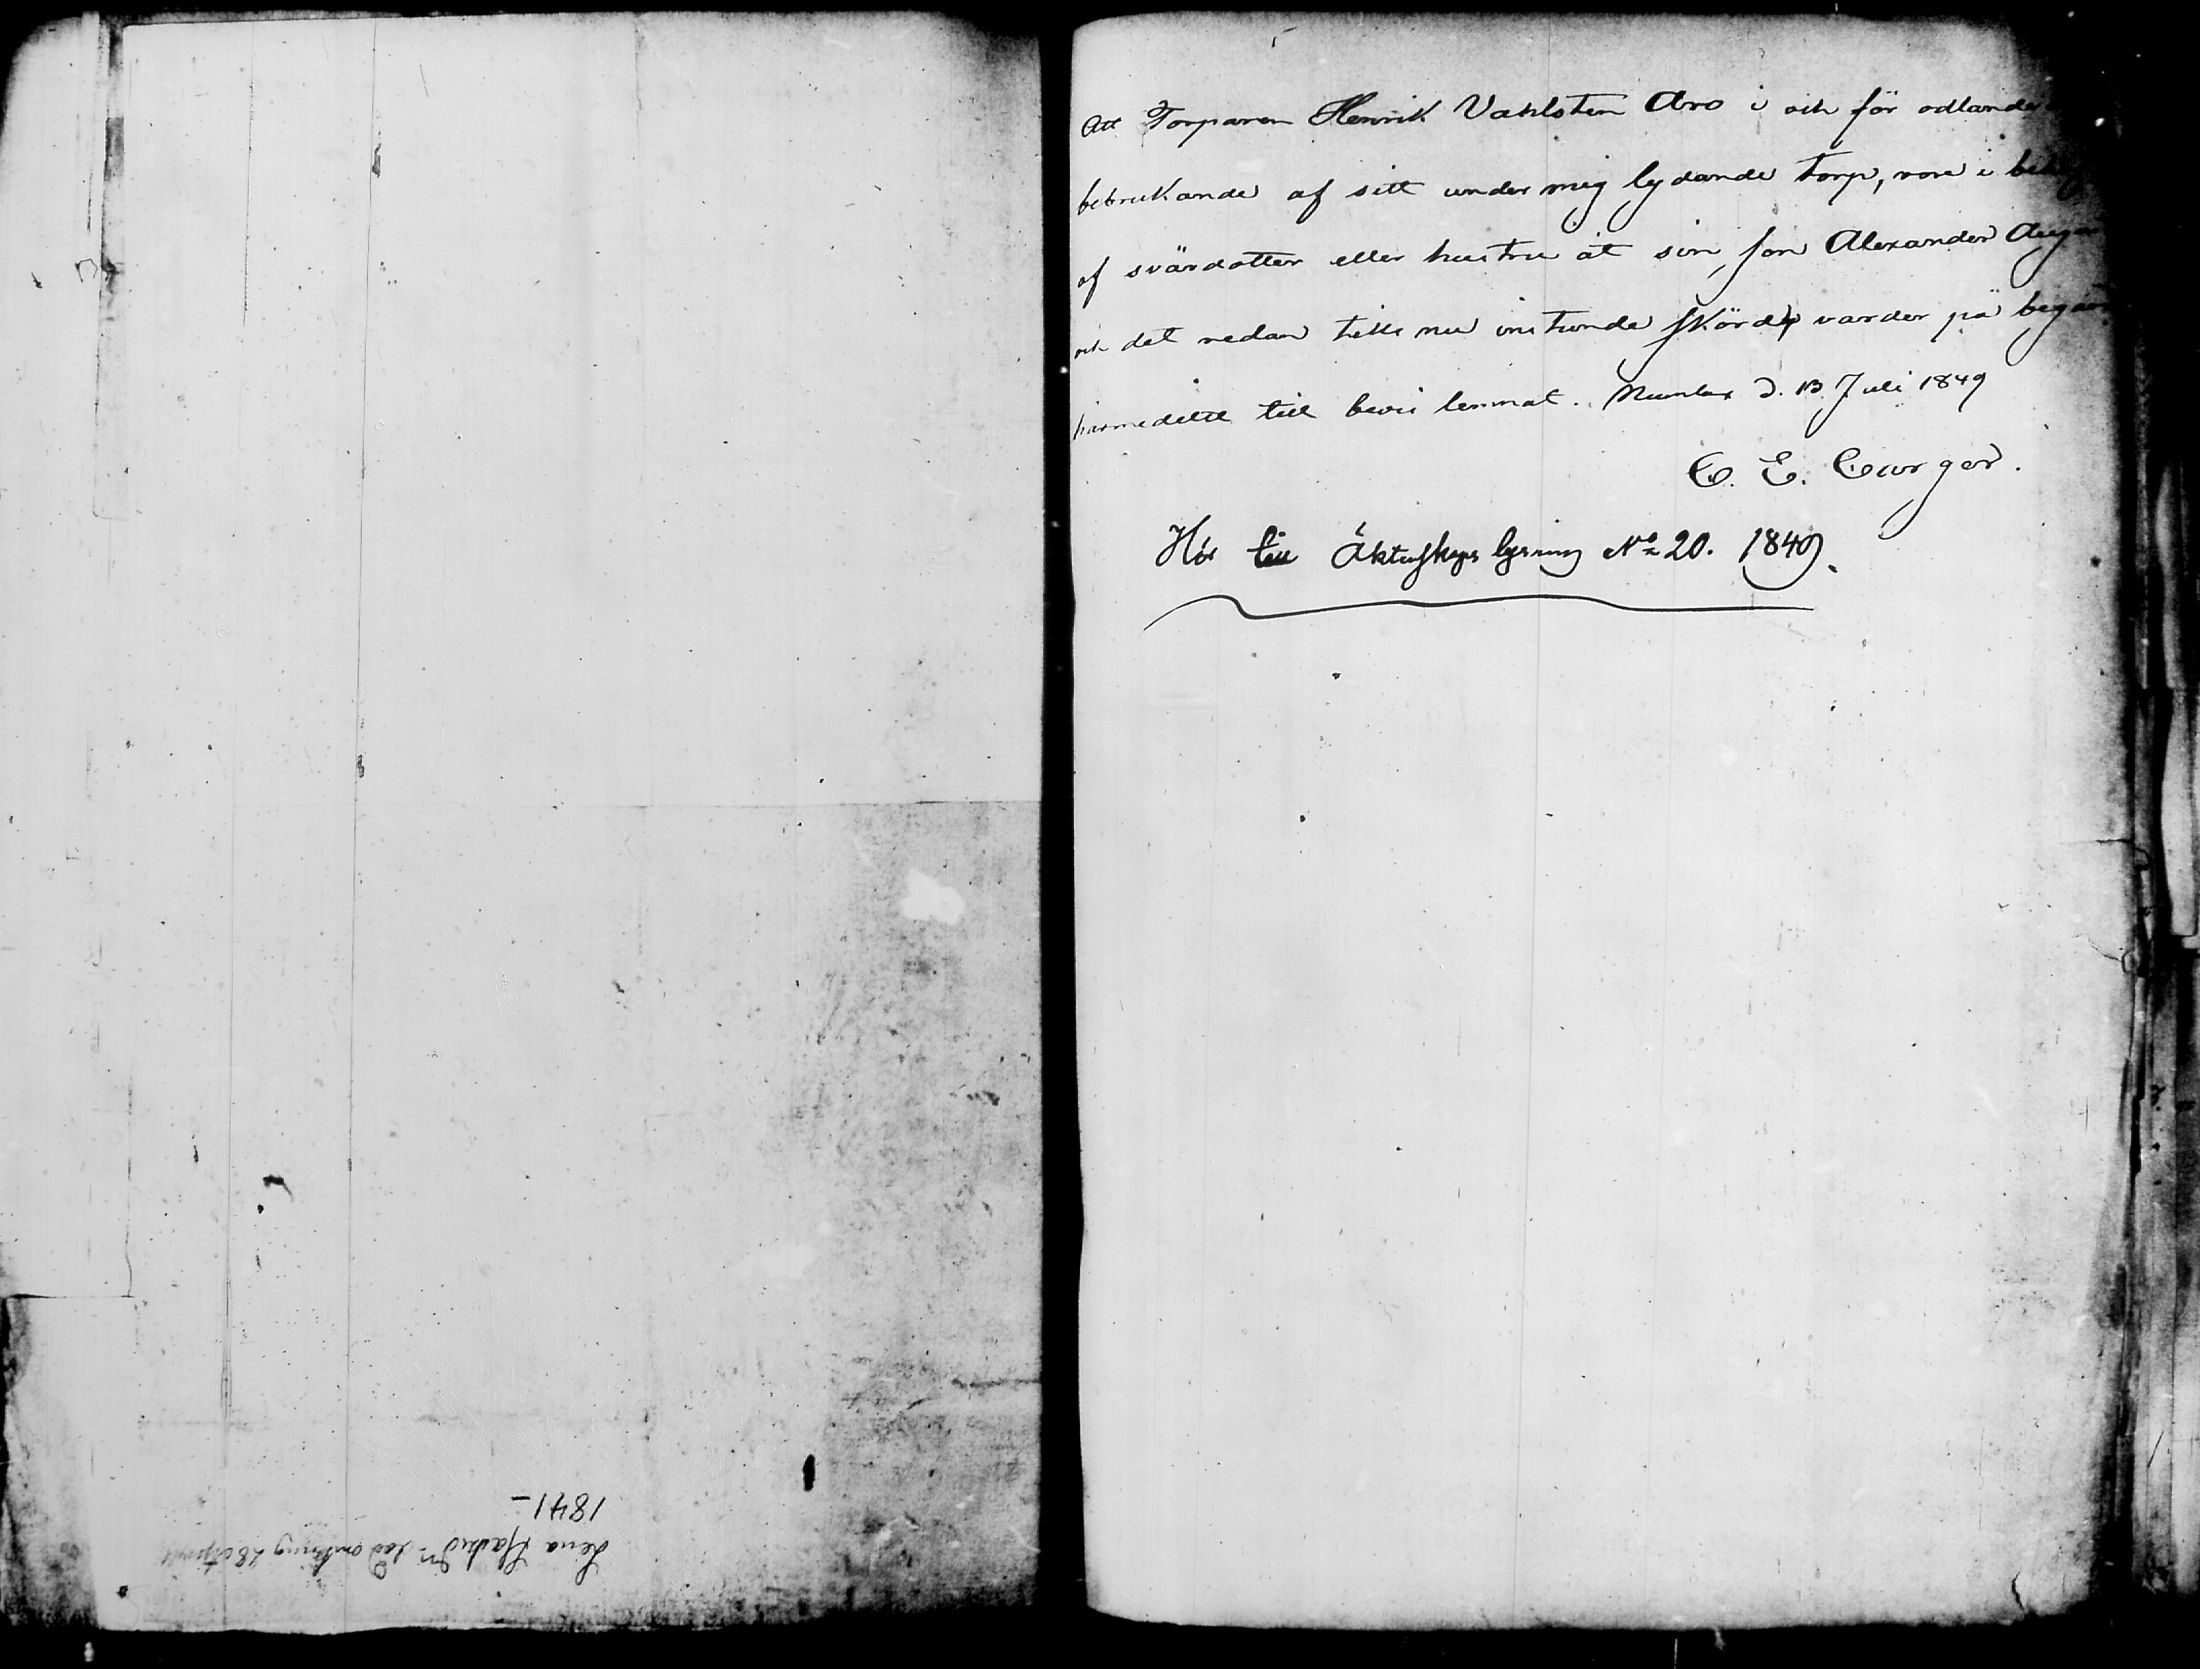 Att Torparen Henrik Vahlsten Aro i och för odlande
bebrukande af sitt under mig lydande torp, vore i
af svärdotter eller hustru åt sin son Alexander
och det redan tills nu instunde skörd, varder på
härmedelst till bevis lemnat. Numlax d. 13 Juli 1849
C. E. Burger.
Hör till Äktenskaps lysning No 20. 1849.
Lena
1841-